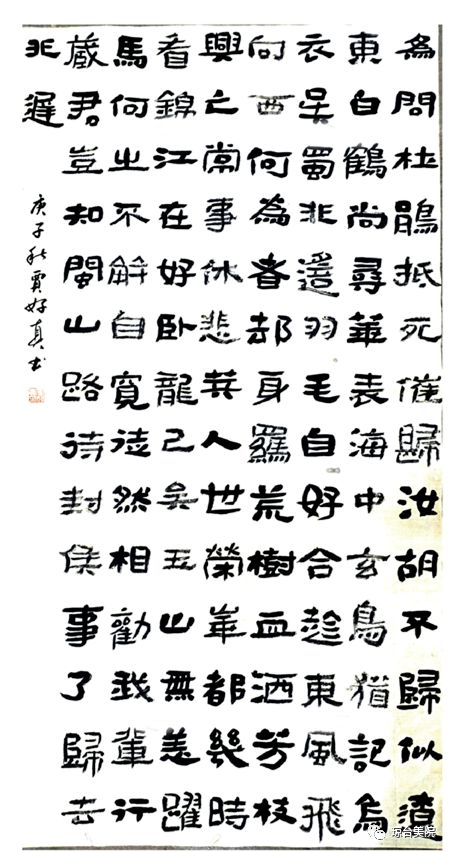 為問杜鵑抵死催歸汝胡不歸似遼
東白鶴尚尋華表海中玄鳥猶記烏
衣吳蜀非遙羽毛自好合趁東風飛
向西何為者却身羈荒樹血洒芳枝
興亡常事休悲筭人世榮華都幾時
看錦江在好臥龍已矣五山無恙躍
馬何之不解自寬徒然相勸我輩行
藏君豈知閩山路待封侯事了歸去
非遲
庚子秋賈好真书
琼台美院